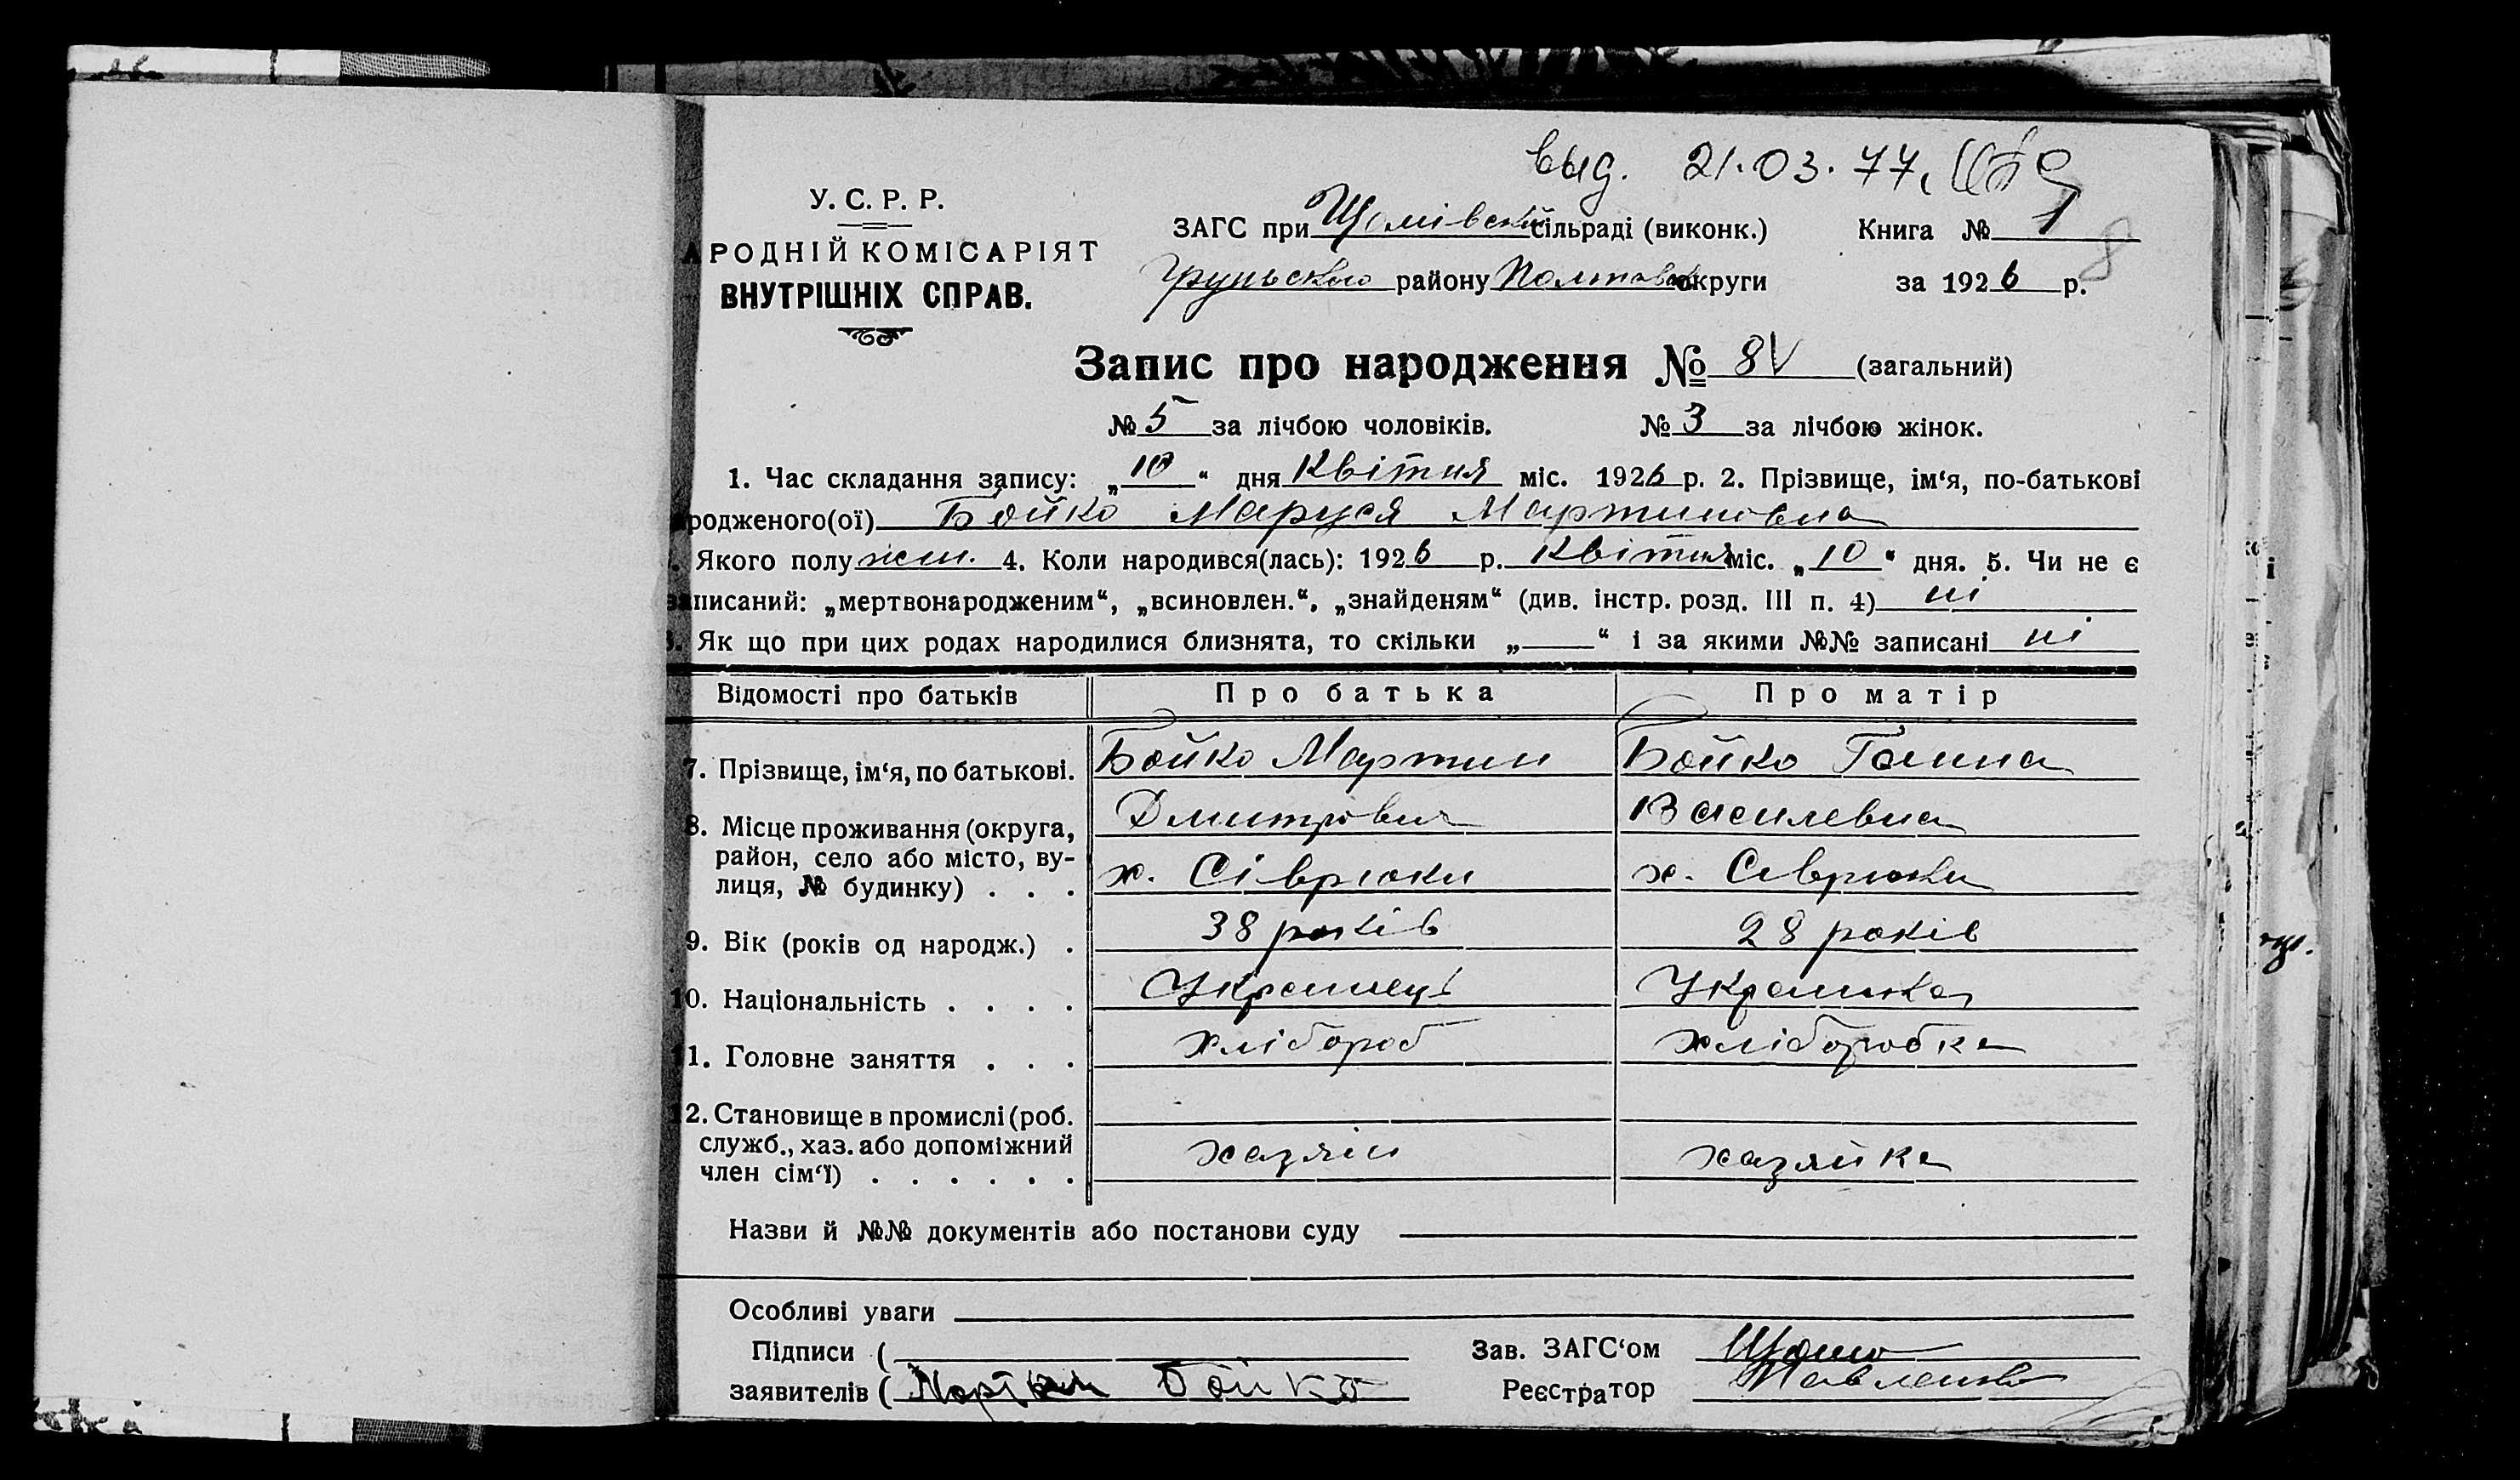 выд. 21.03.77.
У. С. Р. Р.
АРОДНІЙ КОМІСАРІЯТ
ВНУТРІШНІХ СПРАВ.
ЗАГС при сільраді (виконк.) Книга № 1
району Полтавської округи за 1926 р.
8
Запис про народження № 8 (загальний)
№ 5 за лічбою чоловіків. № 3 за лічбою жінок.
1. Час складання запису: „10“ дня Квітня міс. 1926 р. 2. Прізвище, ім‘я, по-батькові
родженого(ої) Бойко Маруся Мартиновна
Якого полу жін. 4. Коли народився(лась): 1926 р. Квітня міс. „10“ дня. 5. Чи не є
записаний: „мертвонародженим“, „всиновлен.“, „знайденям“ (див. інстр. розд. III п. 4) ні
Як що при цих родах народилися близнята, то скільки „ “ і за якими №№ записані ні
Відомості про батьків Про батька Про матір
7. Прізвище, ім‘я, по батькові. Бойко Мартин Бойко Галина
Дмитрович Василевна
8. Місце проживання (округа,
район, село або місто, ву-
лиця, № будинку) . . . х. Сіврюки х. Сіврюки
9. Вік (років од народж.) . 38 років 28 років
10. Національність . . . . Украинець Украинка
11. Головне заняття . . . хлібороб хліборобка
12. Становище в промислі (роб.
служб., хаз. або допоміжний
член сім‘ї) . . . . . . хазяін хазяйка
Назви й №№ документів або постанови суду
Особливі уваги
Підписи ( Зав. ЗАГС‘ом
заявителів ( Мартин Бойко Реєстратор Павленко